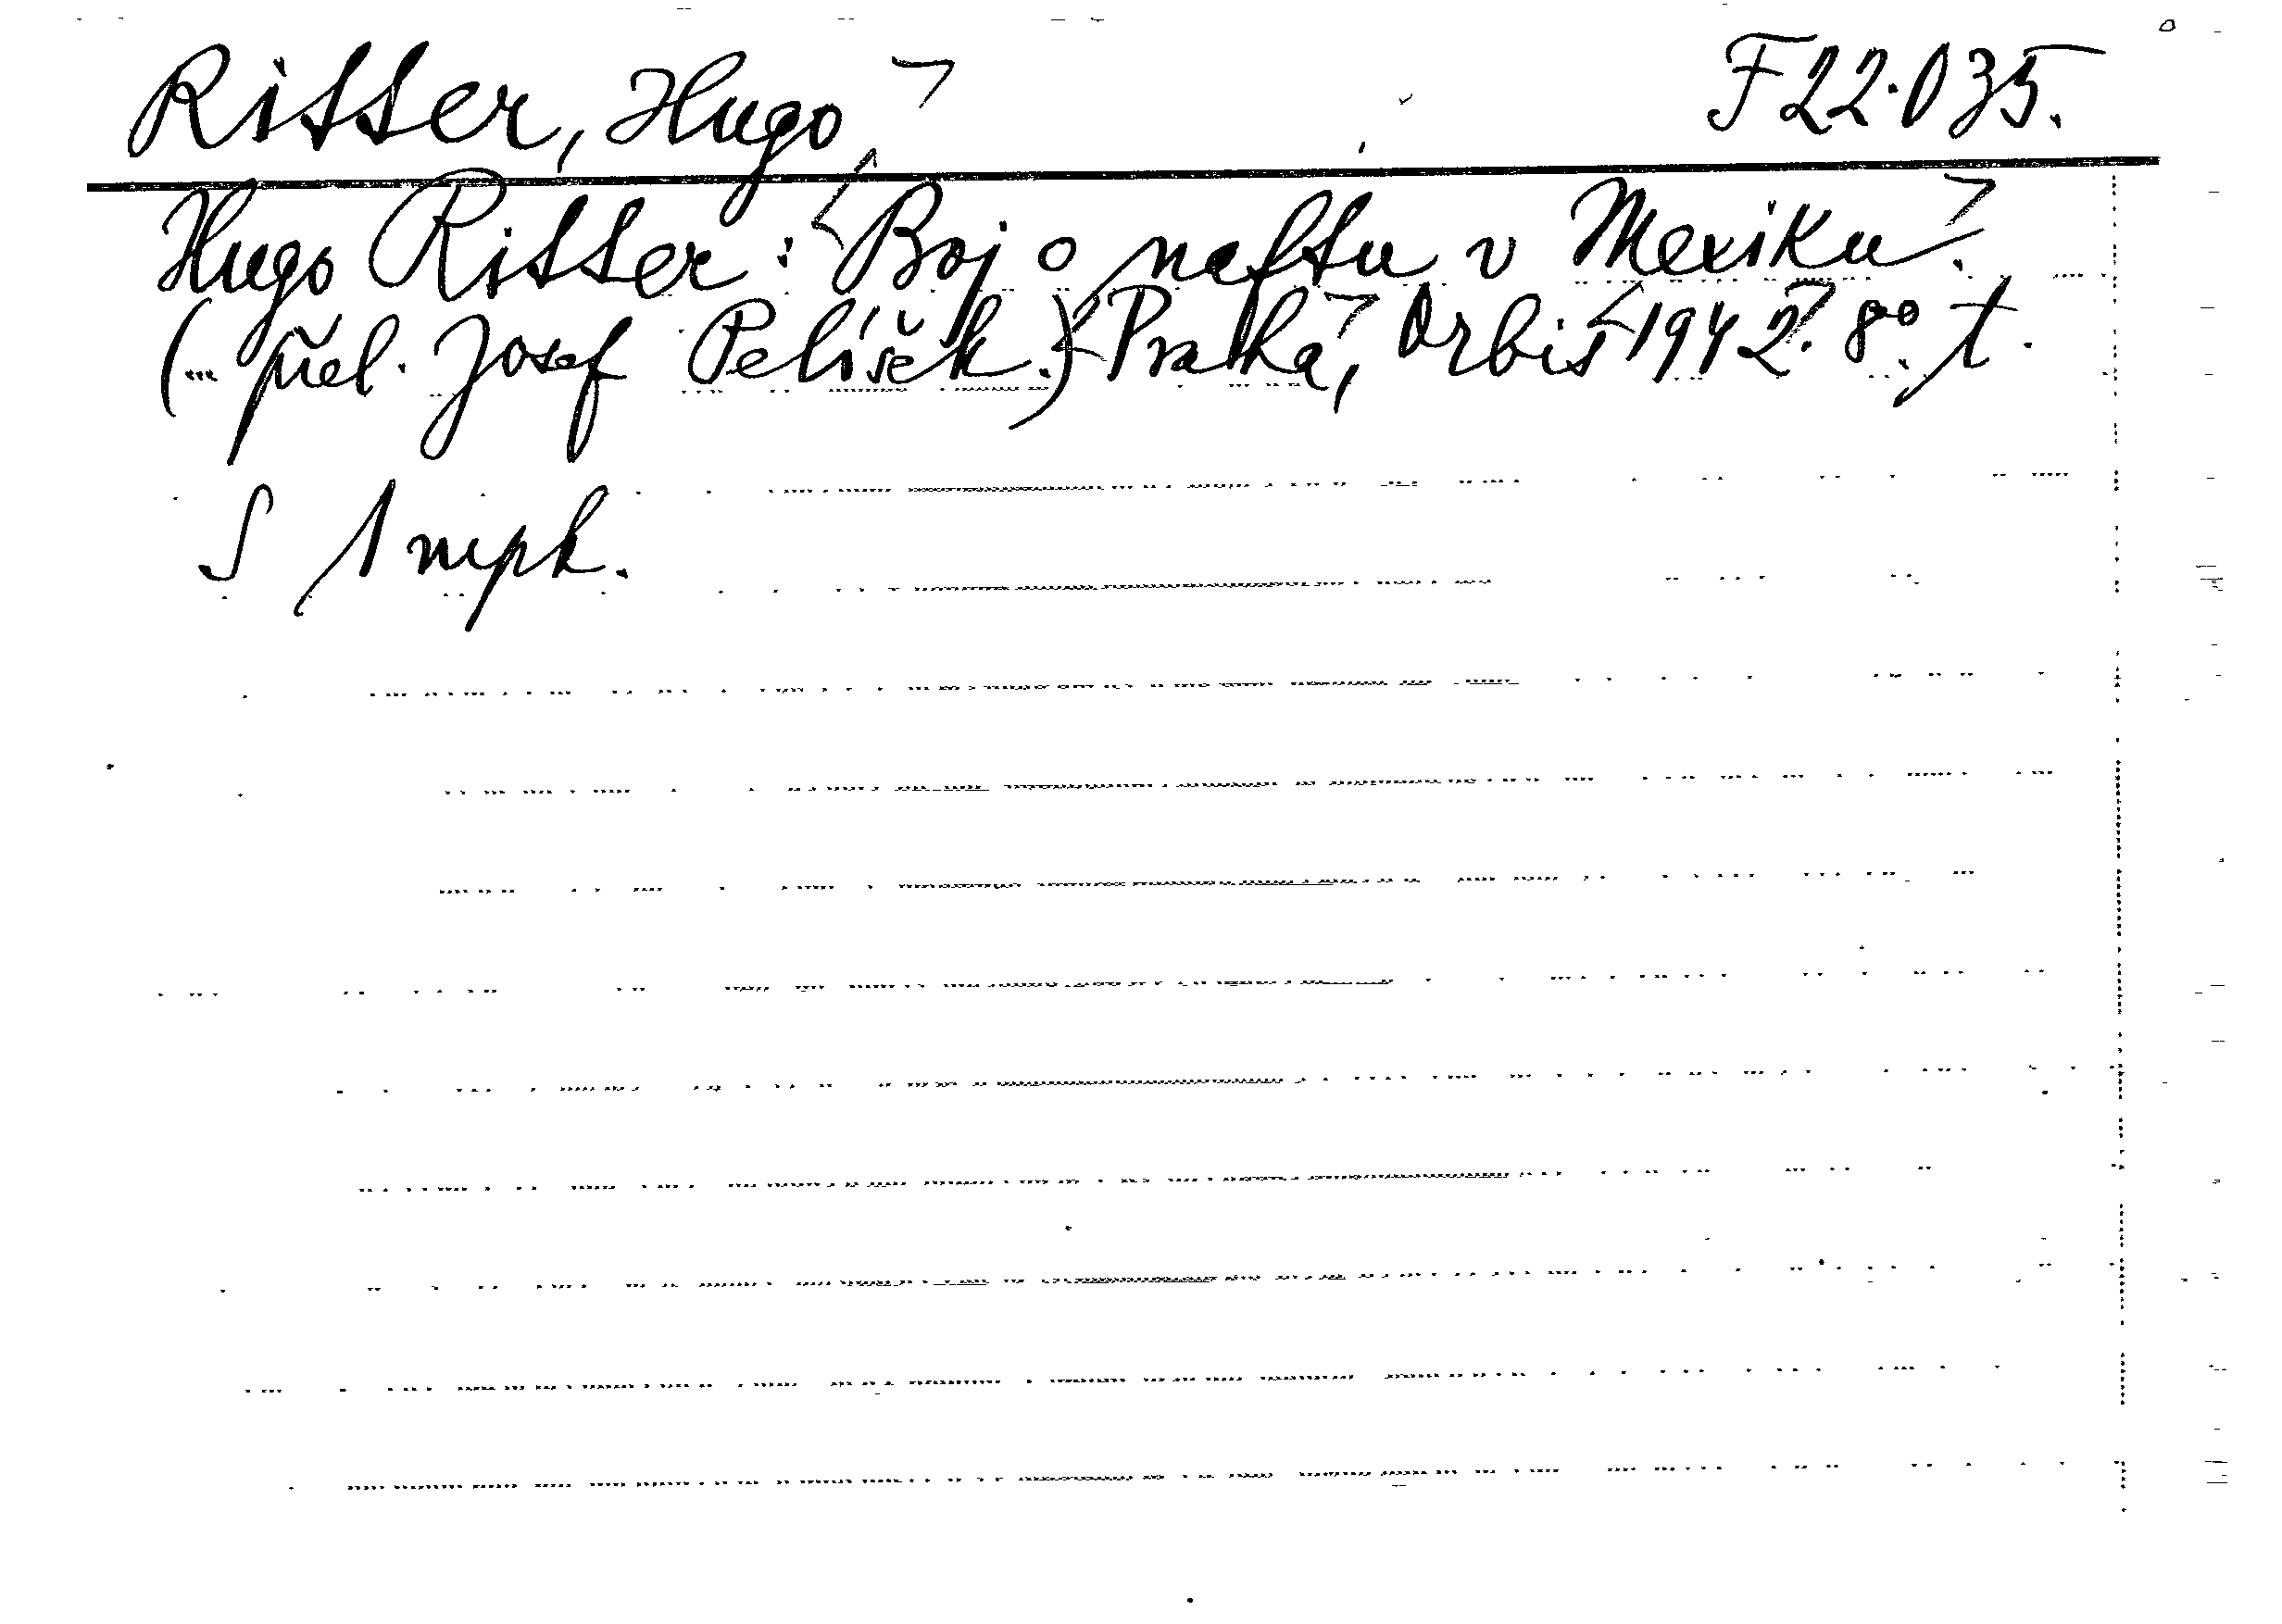 Ritter, Hugo F 22.035.
Hugo Ritter: Boj o naftu v Mexiku.
(... přel. Josef Pelíšek.) Praha, Orbis 1942. 8°. t.
S 1 mpk.